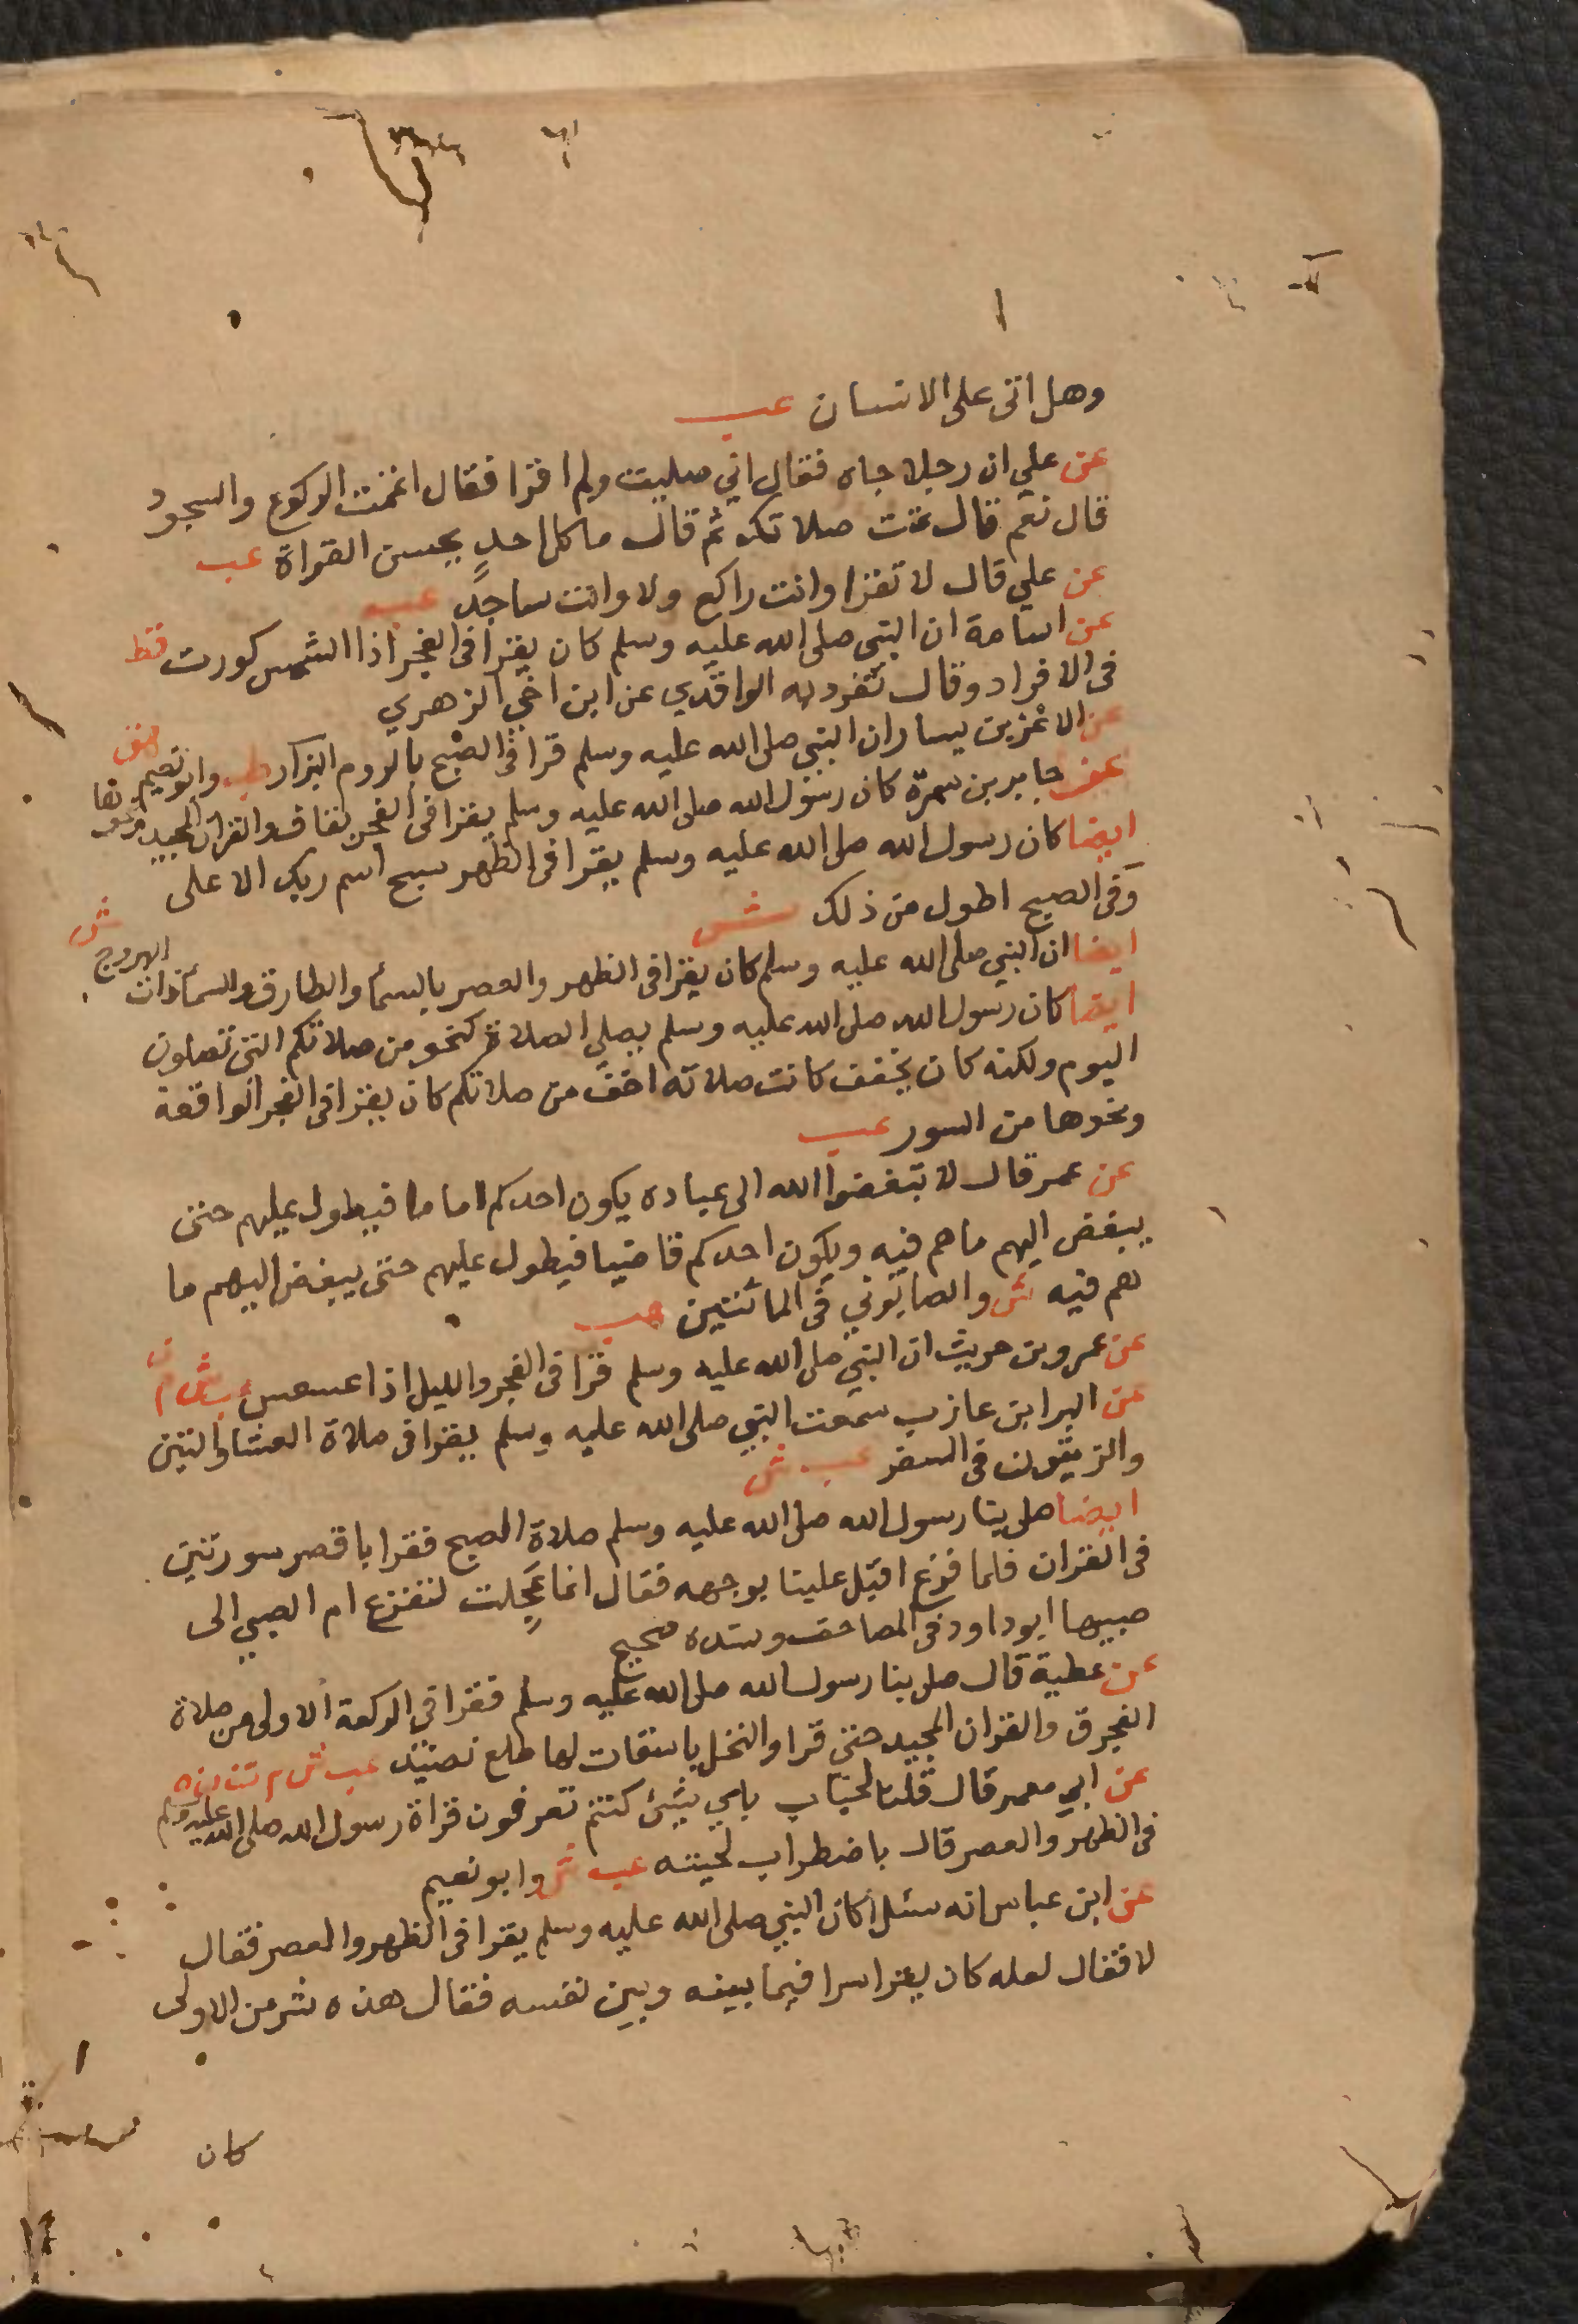 وهل اتى على الانسان عب
عن علي ان رجلا جاه فقال اني صليت ولم اقرا فقال اتممت الركوع والسجود
قال نعم قال تمت صلاتك ثم قال ما كل احد يحسن القراة عب
عن علي قال لا تقرا وانت راكع ولا وانت ساجد عب
عن اسامة ان النبي صلى الله عليه وسلم كان يقرا في الفجر اذا الشمس كورت قط
في الافراد وقال تفرد به الواقدي عن ابن اخي الزهري
عن الاغر بن يسار ان النبي صلى الله عليه وسلم قرا في الصبح بالروم البزار طب وابو نعيم
عن جابر بن سمرة كان رسول الله صلى الله عليه وسلم يقرا في الفجر بقاف والقران المجيد ونحوها ش
ايضا كان رسول الله صلى الله عليه وسلم يقرا في الظهر سبح اسم ربك الاعلى
وفي الصبح اطول من ذلك ش
ايضا ان النبي صلى الله عليه وسلم كان يقرا في الظهر والعصر بالسما والطارق والسما ذات البروج ش
ايضا كان رسول الله صلى الله عليه وسلم يصلي الصلاة كنحو من صلاتكم التي تصلون
اليوم ولكنه كان يخفف كانت صلاته اخف من صلاتكم كان يقرا في الفجر الواقعة
ونحوها من السور عب
عن عمر قال لا تبغضوا الله الى عباده يكون احدكم اماما فيطول عليهم حتى
يبغض اليهم ما هم فيه ويكون احدكم قاضيا فيطول عليهم حتى يبغض اليهم ما
هم فيه ش والصابوني في المائتين هب
عن عمرو بن حريث ان النبي صلى الله عليه وسلم قرا في الفجر والليل اذا عسعس عب ش م ن
عن البرا بن عازب سمعت النبي صلى الله عليه وسلم يقرا في صلاة العشا والتين
والزيتون في السفر عب ش
ايضا صلى بنا رسول الله صلى الله عليه وسلم صلاة الصبح فقرا باقصر سورتين
في القران فلما فرغ اقبل علينا بوجهه فقال انما عجلت لتفزع ام الصبي الى
صبيها ابو داود في المصاحف وسنده صحيح
عن عطية قال صلى بنا رسول الله صلى الله عليه وسلم فقرا في الركعة الاولى من صلاة
الفجر ق والقران المجيد حتى قرا والنخل باسقات لها طلع نضيد عب ش م ت ن ه
عن ابي معمر قال قلنا لخباب باي شيئ كنتم تعرفون قراة رسول الله صلى الله عليه وسلم
في الظهر والعصر قال باضطراب لحيته عب ش وابو نعيم
عن ابن عباس انه سئل اكان النبي صلى الله عليه وسلم يقرا في الظهر والعصر فقال
لا فقال لعله كان يقرا سرا فيما بينه وبين نفسه فقال هذه شر من الاولى
كان